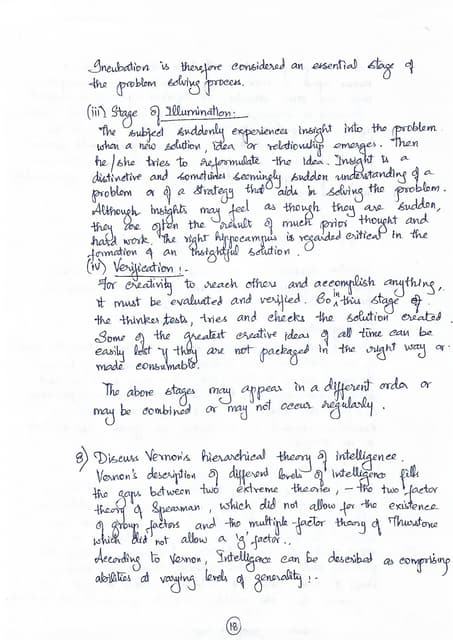 Incubation is therefore considered an essential stage of
the problem solving process.
(iii) Stage of Illumination:
The subject suddenly experiences insight into the problem
when a new solution, idea or relationship emerges. Then
he/she tries to reformulate the Idea. Insight is a
distinctive and sometimes seemingly sudden understanding of a
problem or of a strategy that aids in solving the problem.
Although insights may feel as though they are sudden,
they are often the result of much prior thought and
hard work. The right hippocampus is regarded critical in the
formation of an insightful solution.
(iv) Verification :-
For creativity to reach others and accomplish anything,
it must be evaluated and verified. So, in this stage
the thinker tests, tries and checks the solution created
Some of the greatest creative ideas of all time can be
easily lost if they are not packaged in the right way or
made consumable.
The above stages may appear in a different order or
may be combined or may not occur regularly.
8) Discuss Vernon's hierarchical theory of intelligence.
Vernon's description of different levels of intelligence fills
the gaps between two extreme theories, - the two factor
theory of Spearman, which did not allow for the existence
of group factors and the multiple-factor theory of Thurstone
which did not allow a 'g' factor.
According to Vernon, Intelligence can be described as comprising
abilities at varying levels of generality :-
18